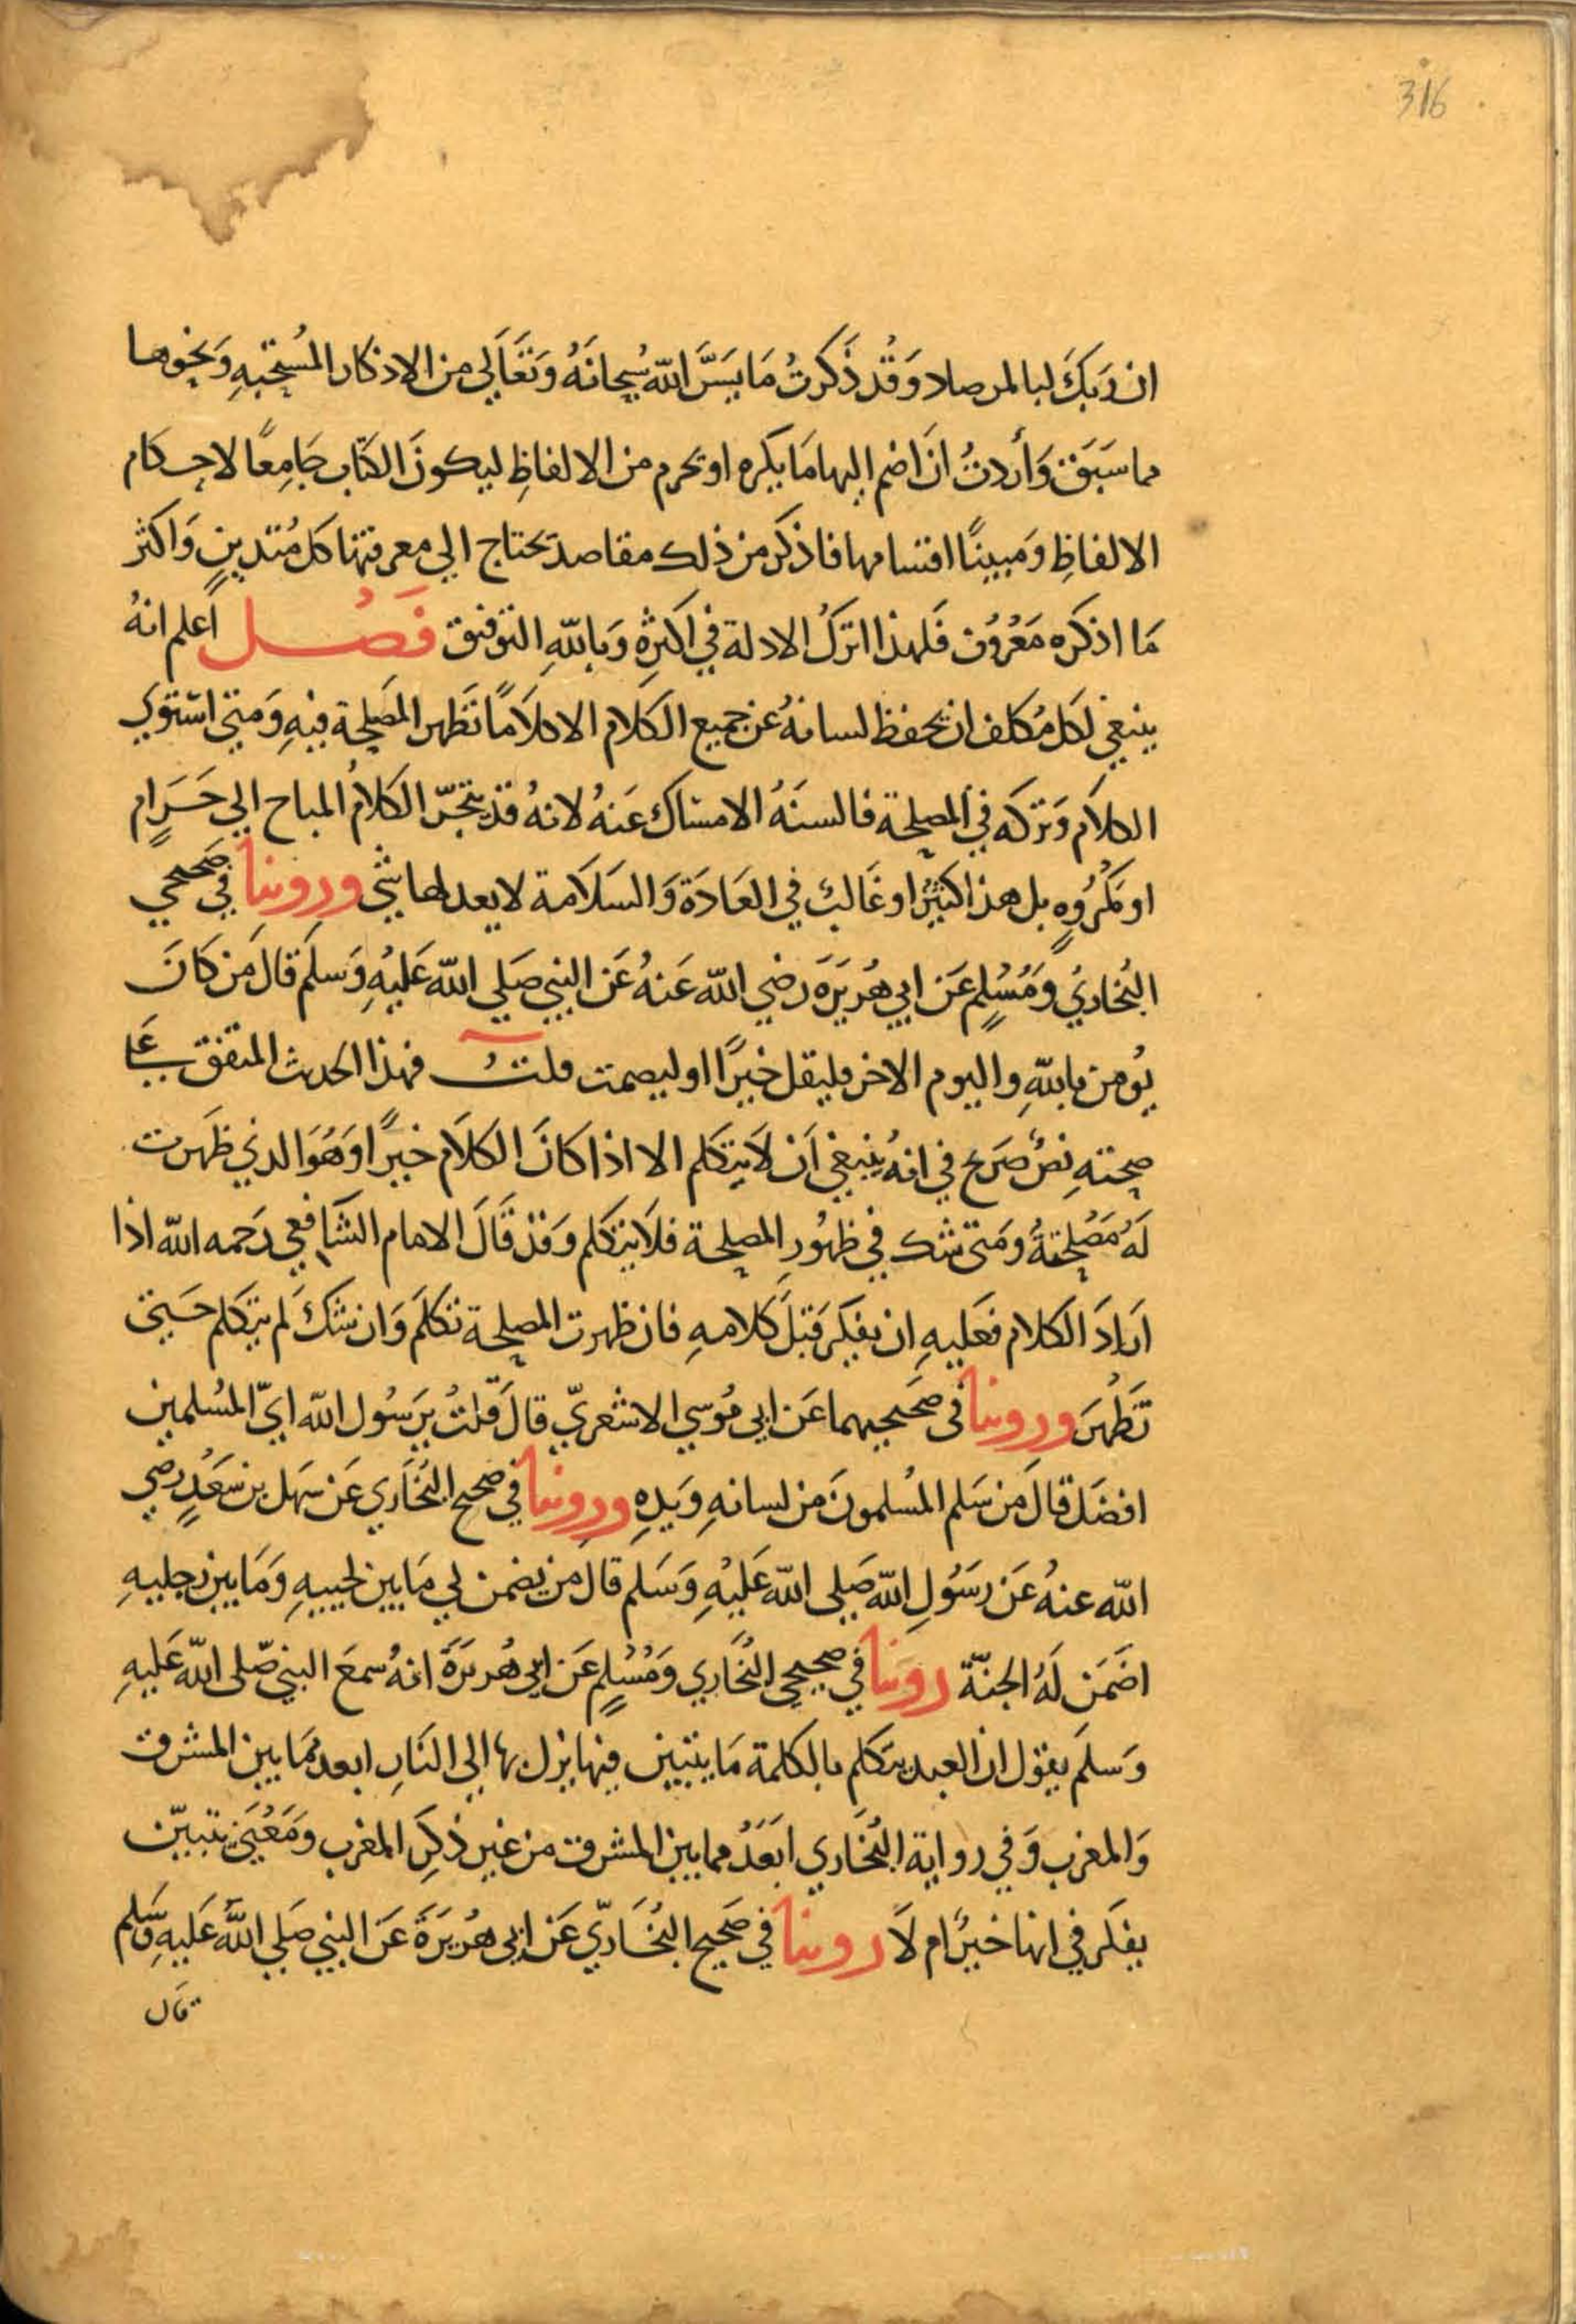 316
ان رَبكَ لبا لمرصاد وَقد ذَكرتُ مَا يسَّرَ الله سُبحانَهُ وَتعَالي من الاذكار المُستحبهِ وَنحوها
مما سَبَق وَأردتُ ان اضم اليها مَا يكره او يحرم من الالفاظِ ليكونَ الكتاب جَامِعًا لاحكام
الالفاظِ وَمبينًا اقسامها فاذكر من ذلك مقاصد يحتاج الي معرفتها كل مُتدينٍ وَاكثر
مَا اذكره مَعرُوف فَلهذا اتركُ الادلة في اكثرِهِ وَباللهِ التوفيق فَصُل اعلم انهُ
ينبغي لكل مُكلف ان يحفظ لسانهُ عن جميع الكلام الا كلاَمًا تَظهر المَصلحة فيهِ وَمتي استوي
الكلاَم وَتركه في المصلحة فالسنَهُ الامسَاك عَنهُ لانهُ قد ينجرّ الكلامُ المباح الي حَرَامٍ
او مَكرُوهٍ بل هذا كثيرٌ او غَالبٌ في العَادَة وَالسَلاَمة لا يعدلها شي ورِوينا في صحيحي
البُخاريُ وَمُسْلِمٍ عَن ابي هُريَرَة رضي الله عَنهُ عَن النبي صَلي الله عَليهِ وَسلَم قالَ مَن كَانَ
يُومن باللهِ واليوم الاخر فليقل خيرًا او ليصمت قلتُ فهذا الحدث المتفق علي
صحتهِ نصٌ صَرع في انهُ ينبغي اَن لاَ يتكلم الا اذا كانَ الكلاَم خيرًا وَهُوَ الذي ظهَرت
لَهُ مَصْلحتهُ ومَتي شك في ظهُورِ المصلحة فلاَ يتكلم وَقد قَالَ الامام الشَافعي رَحمه الله اذا
اَرادَ الكلام فعَليهِ ان يفكرَ قبلَ كلامهِ فان ظهرت المصلحة تكلمَ وَان شكَ لم يتكلم حَتي
تَظهرَ ورِوينا في صَحيحيهما عَن ابي مُوسي الاشعريّ قالَ قلتُ يرَسُول الله ايّ المُسلمين
افضَل قالَ مَن سَلم المُسلمونَ من لسانهِ وَيدِهِ ورِوينا في صَحيح البُخَاري عَن سَهل بن سَعَدٍ رضي
الله عنهُ عَن رسَوُلِ الله صَلي الله عَليهِ وَسَلم قال من يضمن لي مَا بين لحييهِ وَمَا بين رجليهِ
اضَمن لَهُ الجنّة روينا في صحيحي البُخَاري وَمُسْلِمٍ عَن ابي هُريرَةَ انهُ سمعَ النبي صّلي الله عَليهِ
وَسلَم يقول ان العبد يتكلم بالكلمة مَا يتبين فيها يزل بها الي النَارِ ابعد ممَا بين المشرق
وَالمغرب وَفي رواية البُخَاري ابَعَدُ مما بين المشرق من غير ذكِر المغرب وَمَعْنَي يتبيّن
يفكر في انها خيرٌ ام لاَ روينا في صَحيح البُخَاريّ عَن ابي هُريرَةَ عَن النبي صَلي اللَّه عَليهِ وَسَلم
قَال